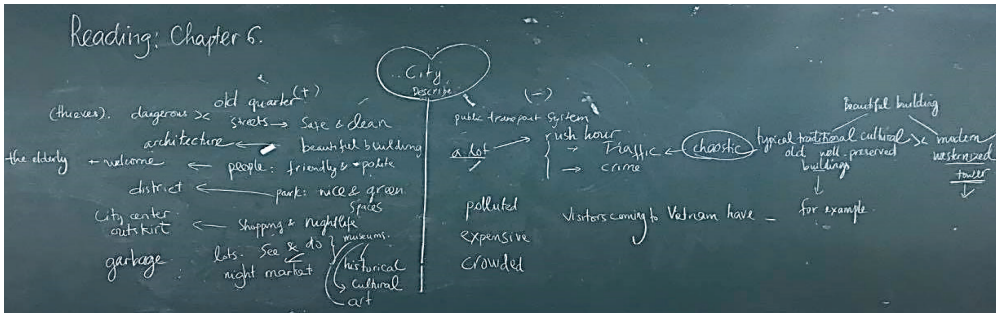 Reading: Chapter 6.
City
Describe
(+)
old quarter
(thieves). dangerous >< streets → Safe & clean
architecture ← beautiful building
the elderly + welcome ← people: friendly & polite
district ← park: nice & green
spaces
City center
outskirt ← Shopping & nightlife
garbage
lots. See & do } museums.
night market
historical
cultural
art
(-)
public transport system
a lot → rush hour
→ Traffic ← chaostic
→ crime
polluted
expensive
crowded
Beautiful building
typical traditional cultural >< modern
old well-preserved westernized
buildings tower
for example.
Visitors coming to Vietnam have _